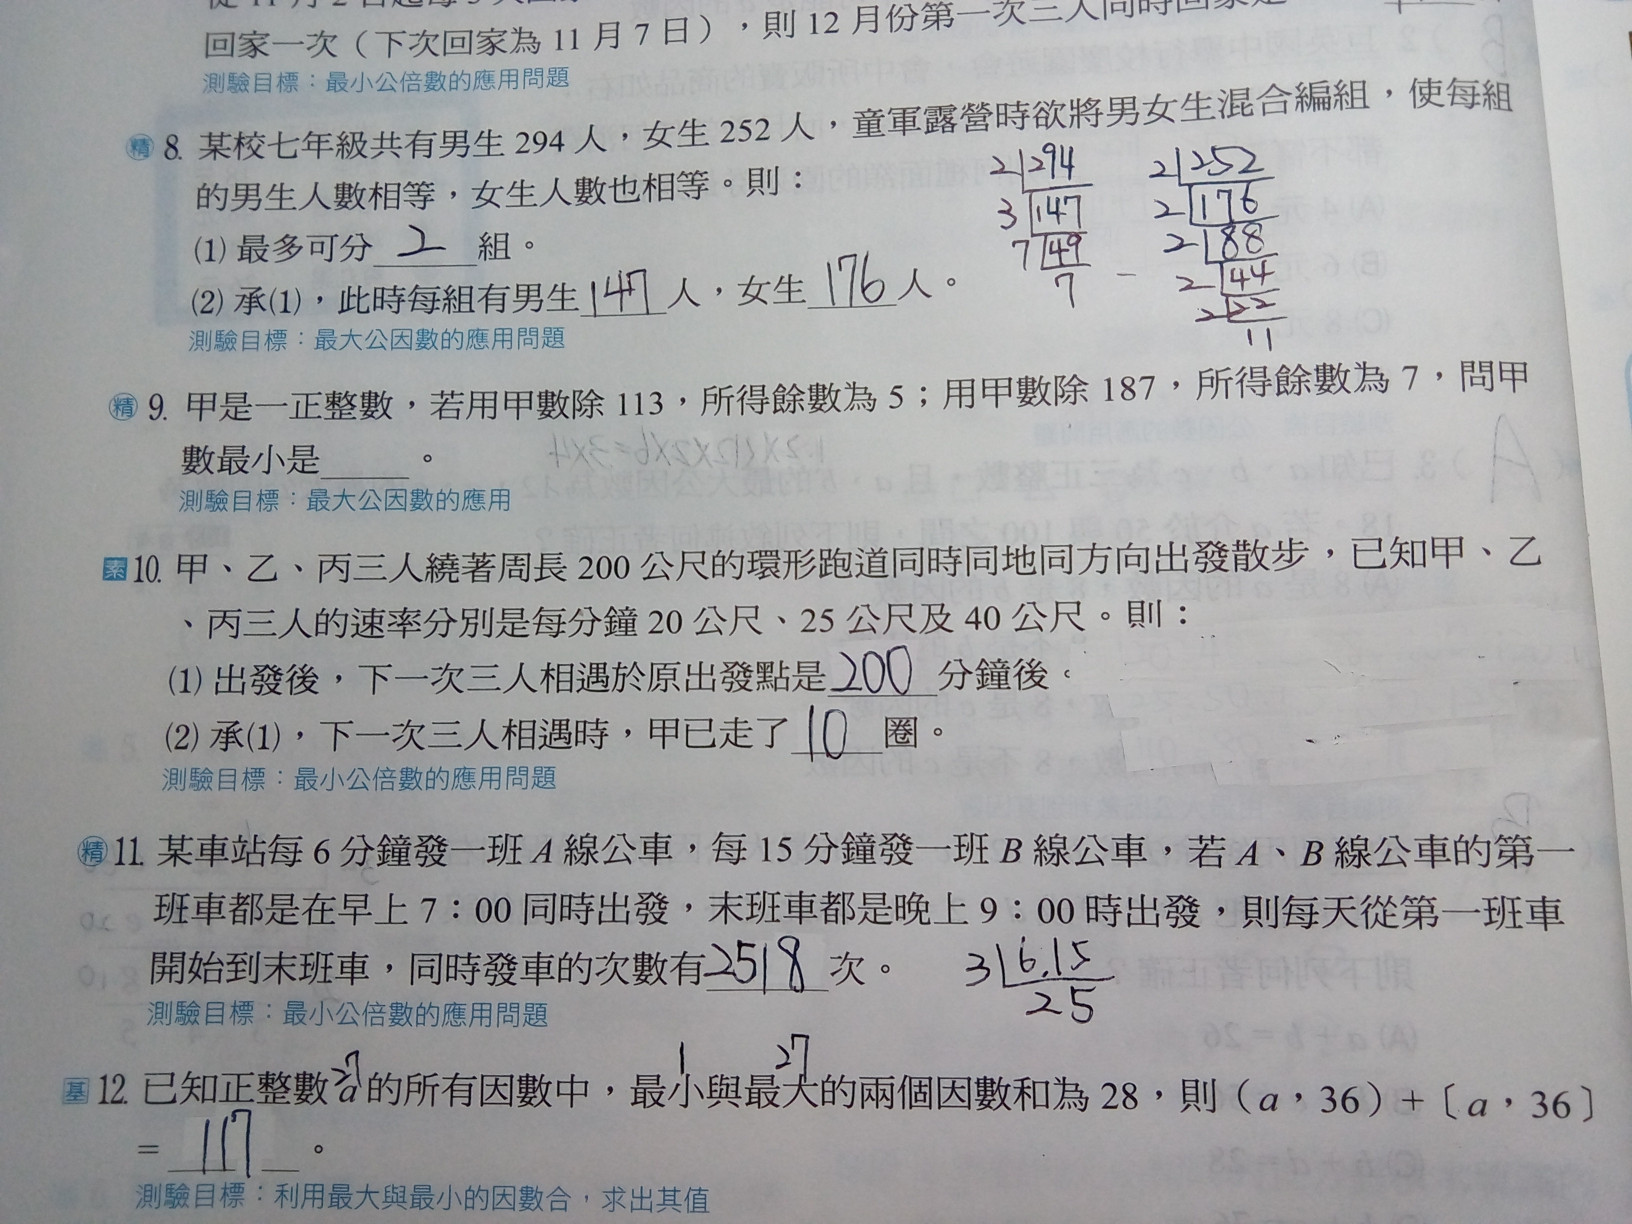 回家一次(下次回家為 11 月 7 日),則 12 月份第一次三人同時回家是
測驗目標:最小公倍數的應用問題
精 8. 某校七年級共有男生 294 人,女生 252 人,童軍露營時欲將男女生混合編組,使每組
的男生人數相等,女生人數也相等。則:
(1) 最多可分 2 組。
(2) 承(1),此時每組有男生 147 人,女生 176 人。
測驗目標:最大公因數的應用問題
2 294
3 147
7 49
7
2 252
2 176
2 88
2 44
2 22
11
精 9. 甲是一正整數,若用甲數除 113,所得餘數為 5;用甲數除 187,所得餘數為 7,問甲
數最小是 。
測驗目標:最大公因數的應用
素 10. 甲、乙、丙三人繞著周長 200 公尺的環形跑道同時同地同方向出發散步,已知甲、乙
、丙三人的速率分別是每分鐘 20 公尺、25 公尺及 40 公尺。則:
(1) 出發後,下一次三人相遇於原出發點是 200 分鐘後。
(2) 承(1),下一次三人相遇時,甲已走了 10 圈。
測驗目標:最小公倍數的應用問題
精 11. 某車站每 6 分鐘發一班 A 線公車,每 15 分鐘發一班 B 線公車,若 A、B 線公車的第一
班車都是在早上 7:00 同時出發,末班車都是晚上 9:00 時出發,則每天從第一班車
開始到末班車,同時發車的次數有 2518 次。
3 6.15
2 5
測驗目標:最小公倍數的應用問題
27 1 27
基 12. 已知正整數 a 的所有因數中,最小與最大的兩個因數和為 28,則(a,36)+〔a,36〕
= 117 。
測驗目標:利用最大與最小的因數合,求出其值